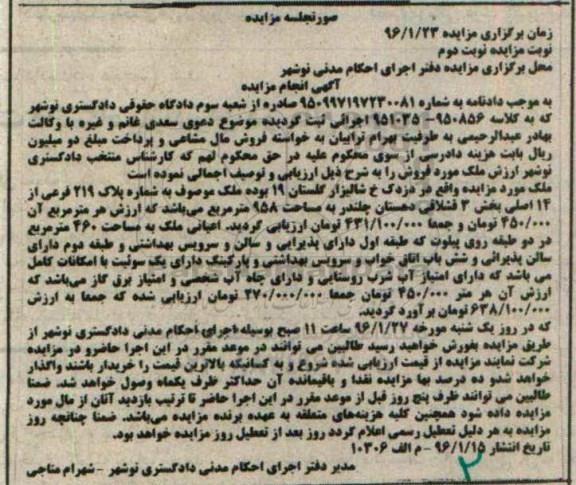 صورتجلسه مزایده
زمان برگزاری مزایده ۹۶/۱/۲۳
نوبت مزایده نوبت دوم
محل برگزاری مزایده دفتر اجرای احکام مدنی نوشهر
آگهی انجام مزایده
به موجب دادنامه به شماره ۹۵۰۹۹۷۱۹۷۲۳۰۰۸۱ صادره از شعبه سوم دادگاه حقوقی دادگستری نوشهر
که به کلاسه ۹۵۰۸۵۶- ۹۵۱۰۳۵ اجرائی ثبت گردیده موضوع دعوی سعدی غانم و غیره با وکالت
بهادر عبدالرحیمی به طرفیت بهرام ترابیان به خواسته فروش مال مشاعی و پرداخت مبلغ دو میلیون
ریال بابت هزینه دادرسی از سوی محکوم علیه در حق محکوم لهم که کارشناس منتخب دادگستری
نوشهر ارزش ملک مورد فروش را به شرح ذیل ارزیابی و توصیف اجمالی نموده است
ملک مورد مزایده واقع در دزدک خ شالیزار گلستان ۱۹ بوده ملک موصوف به شماره پلاک ۲۱۹ فرعی از
۱۴ اصلی بخش ۳ قشلاقی دهستان چلندر به مساحت ۹۵۸ مترمربع می‌باشد که ارزش هر مترمربع آن
۴۵۰/۰۰۰ تومان و جمعا ۴۳۱/۱۰۰/۰۰۰ تومان ارزیابی گردید. اعیانی ملک به مساحت ۴۶۰ مترمربع
در دو طبقه روی پیلوت که طبقه اول دارای پذیرایی و سالن و سرویس بهداشتی و طبقه دوم دارای
سالن پذیرائی و شش باب اتاق خواب و سرویس بهداشتی و پارکینگ دارای یک سوئیت با امکانات کامل
می باشد که دارای امتیاز آب شرب روستایی و دارای چاه آب شخصی و امتیاز برق گاز می‌باشد که
ارزش آن هر متر ۴۵۰/۰۰۰ تومان جمعا ۲۷۰/۰۰۰/۰۰۰ تومان ارزیابی شده که جمعا به ارزش
۶۳۸/۱۰۰/۰۰۰ تومان برآورد گردید.
که در روز یک شنبه مورخه ۹۶/۱/۲۷ ساعت ۱۱ صبح بوسیله اجرای احکام مدنی دادگستری نوشهر از
طریق مزایده بفورش خواهید رسید طالبین می توانند در موعد مقرر در این اجرا حاضرو در مزایده
شرکت نمایند مزایده از قیمت ارزیابی شده شروع و به کسانیکه بالاترین قیمت را خریدار باشند واگذار
خواهد شدو ده درصد بها مزایده نقدا و باقیمانده آن حداکثر ظرف یکماه وصول خواهد شد. ضمنا
طالبین می توانند ظرف پنج روز قبل از موعد مقرر در این اجرا حاضر تا ترتیب بازدید آنان از مال مورد
مزایده داده شود همچنین کلیه هزینه‌های متعلقه به عهده برنده مزایده می‌باشد. ضمنا چنانچه روز
مزایده به هر دلیل تعطیل رسمی اعلام گردد روز بعد از تعطیل روز مزایده خواهد بود.
تاریخ انتشار ۹۶/۱/۱۵ - م الف ۱۰۳۰۶
مدیر دفتر اجرای احکام مدنی دادگستری نوشهر - شهرام متاجی
۲